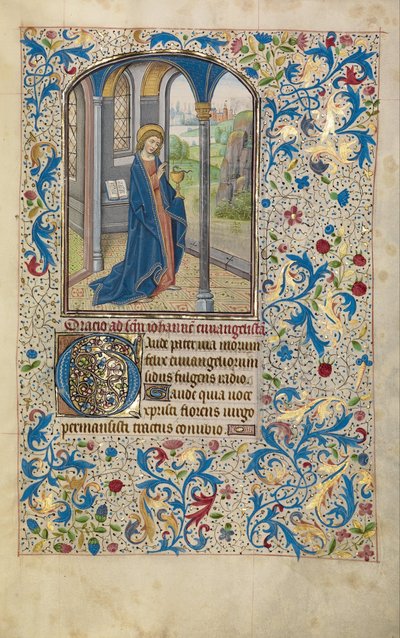 Oracio ad sctm iohanne ewangelista
Gaude pater via morum
felix ewangeliorum
sidus fulgens radio.
Gaude quia voce
xpristi florens virgo
permansisti tinctus conubio.